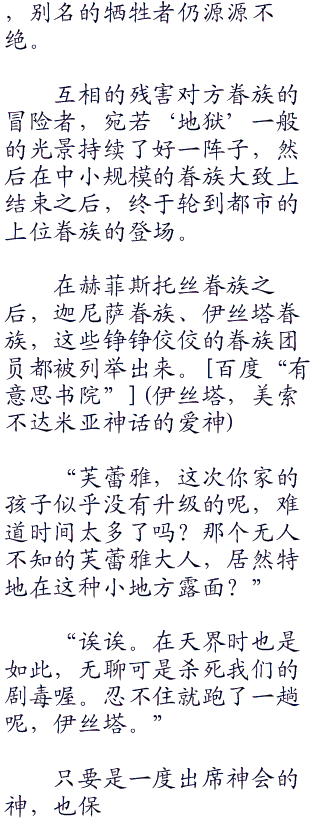 ，别名的牺牲者仍源源不
绝。
互相的残害对方眷族的
冒险者，宛若‘地狱’一般
的光景持续了好一阵子，然
后在中小规模的眷族大致上
结束之后，终于轮到都市的
上位眷族的登场。
在赫菲斯托丝眷族之
后，迦尼萨眷族、伊丝塔眷
族，这些铮铮佼佼的眷族团
员都被列举出来。[百度“有
意思书院”] (伊丝塔，美索
不达米亚神话的爱神)
“芙蕾雅，这次你家的
孩子似乎没有升级的呢，难
道时间太多了吗？那个无人
不知的芙蕾雅大人，居然特
地在这种小地方露面？”
“诶诶。在天界时也是
如此，无聊可是杀死我们的
剧毒喔。忍不住就跑了一趟
呢，伊丝塔。”
只要是一度出席神会的
神，也保